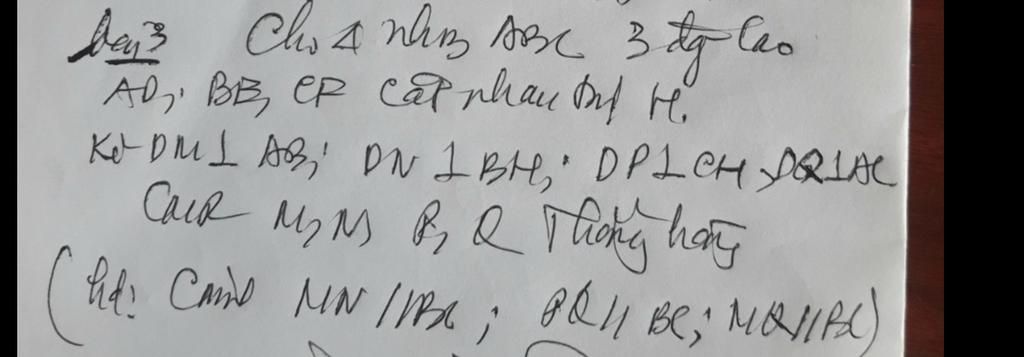 Bài 3 Cho Δ nhọn ABC 3 đg cao
AD, BE, CF cắt nhau tại H.
Kẻ DM ⊥ AB; DN ⊥ BH; DP ⊥ CH, DQ ⊥ AC
CMR M, N, P, Q Thẳng hàng
(hd: Cminh MN // BC; PQ // BC; MQ // BC)